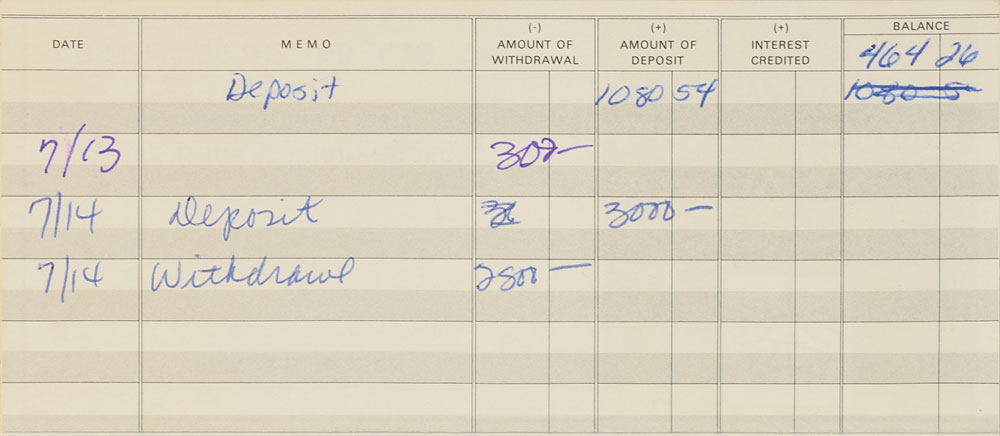 DATE MEMO (-) AMOUNT OF WITHDRAWAL (+) AMOUNT OF DEPOSIT (+) INTEREST CREDITED BALANCE
464 26
Deposit 1080 54 1080 5
7/13 300—
7/14 Deposit 3000 —
7/14 Withdrawl 2500 —